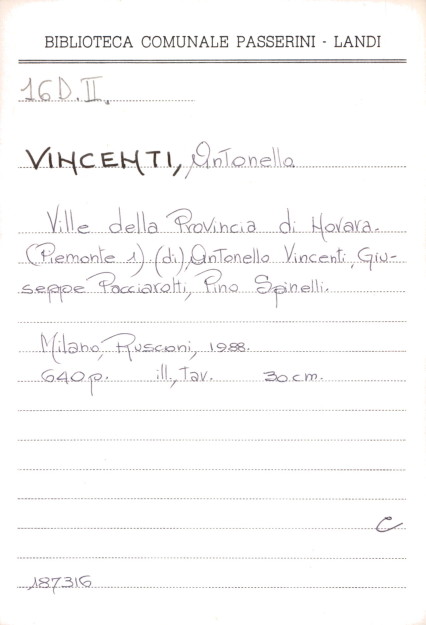 BIBLIOTECA COMUNALE PASSERINI - LANDI
16 D. II.
VINCENTI, Antonello
Ville della Provincia di Novara.
(Piemonte 1). (di) Antonello Vincenti, Giu-
seppe Pacciarotti, Pino Spinelli.
Milano, Rusconi, 1988.
640 p. ill., Tav. 30 cm.
C
187316